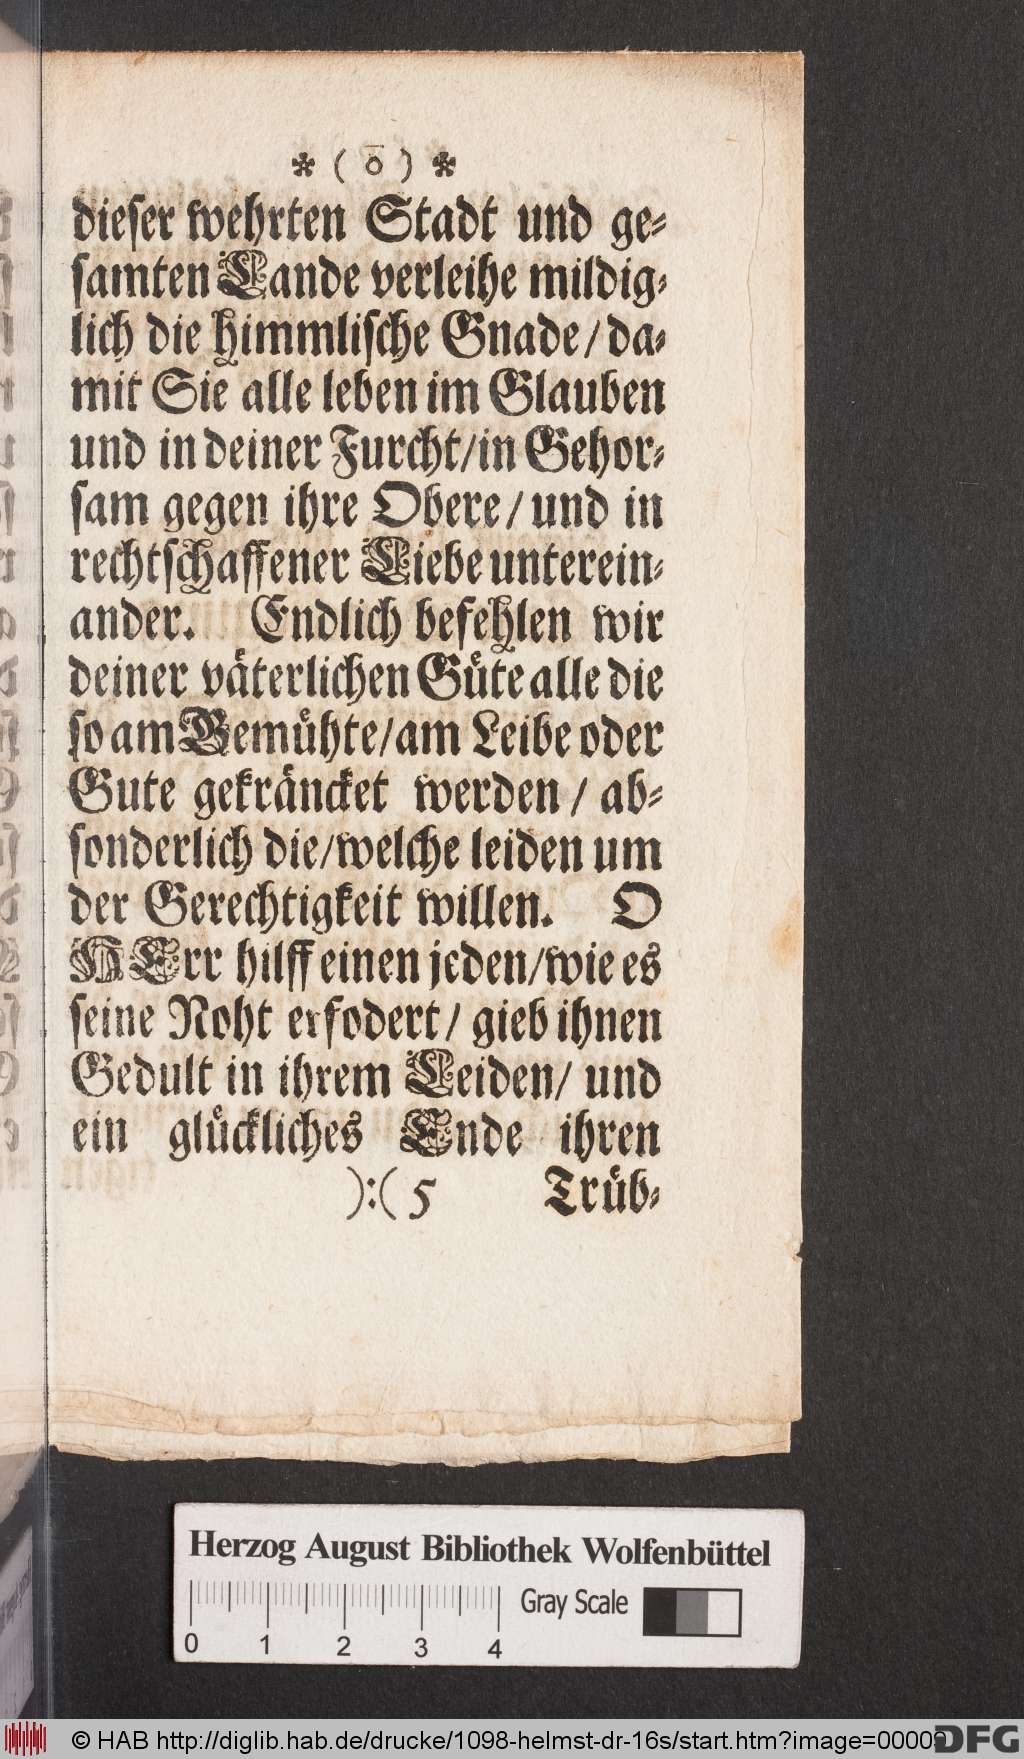 * ( o ) *
dieser wehrten Stadt und ge⸗
samten Lande verleihe mildig⸗
lich die himmlische Gnade / da⸗
mit Sie alle leben im Glauben
und in deiner Furcht / in Gehor⸗
sam gegen ihre Obere / und in
rechtschaffener Liebe unterein⸗
ander. Endlich befehlen wir
deiner väterlichen Güte alle die
so am Gemühte / am Leibe oder
Gute gekräncket werden / ab⸗
sonderlich die / welche leiden um
der Gerechtigkeit willen. O
HErr hilff einen jeden / wie es
seine Noht erfodert / gieb ihnen
Gedult in ihrem Leiden / und
ein glückliches Ende ihren
):( 5 Trüb⸗
Herzog August Bibliothek Wolfenbüttel
Gray Scale
0 1 2 3 4
© HAB http://diglib.hab.de/drucke/1098-helmst-dr-16s/start.htm?image=00009
DFG